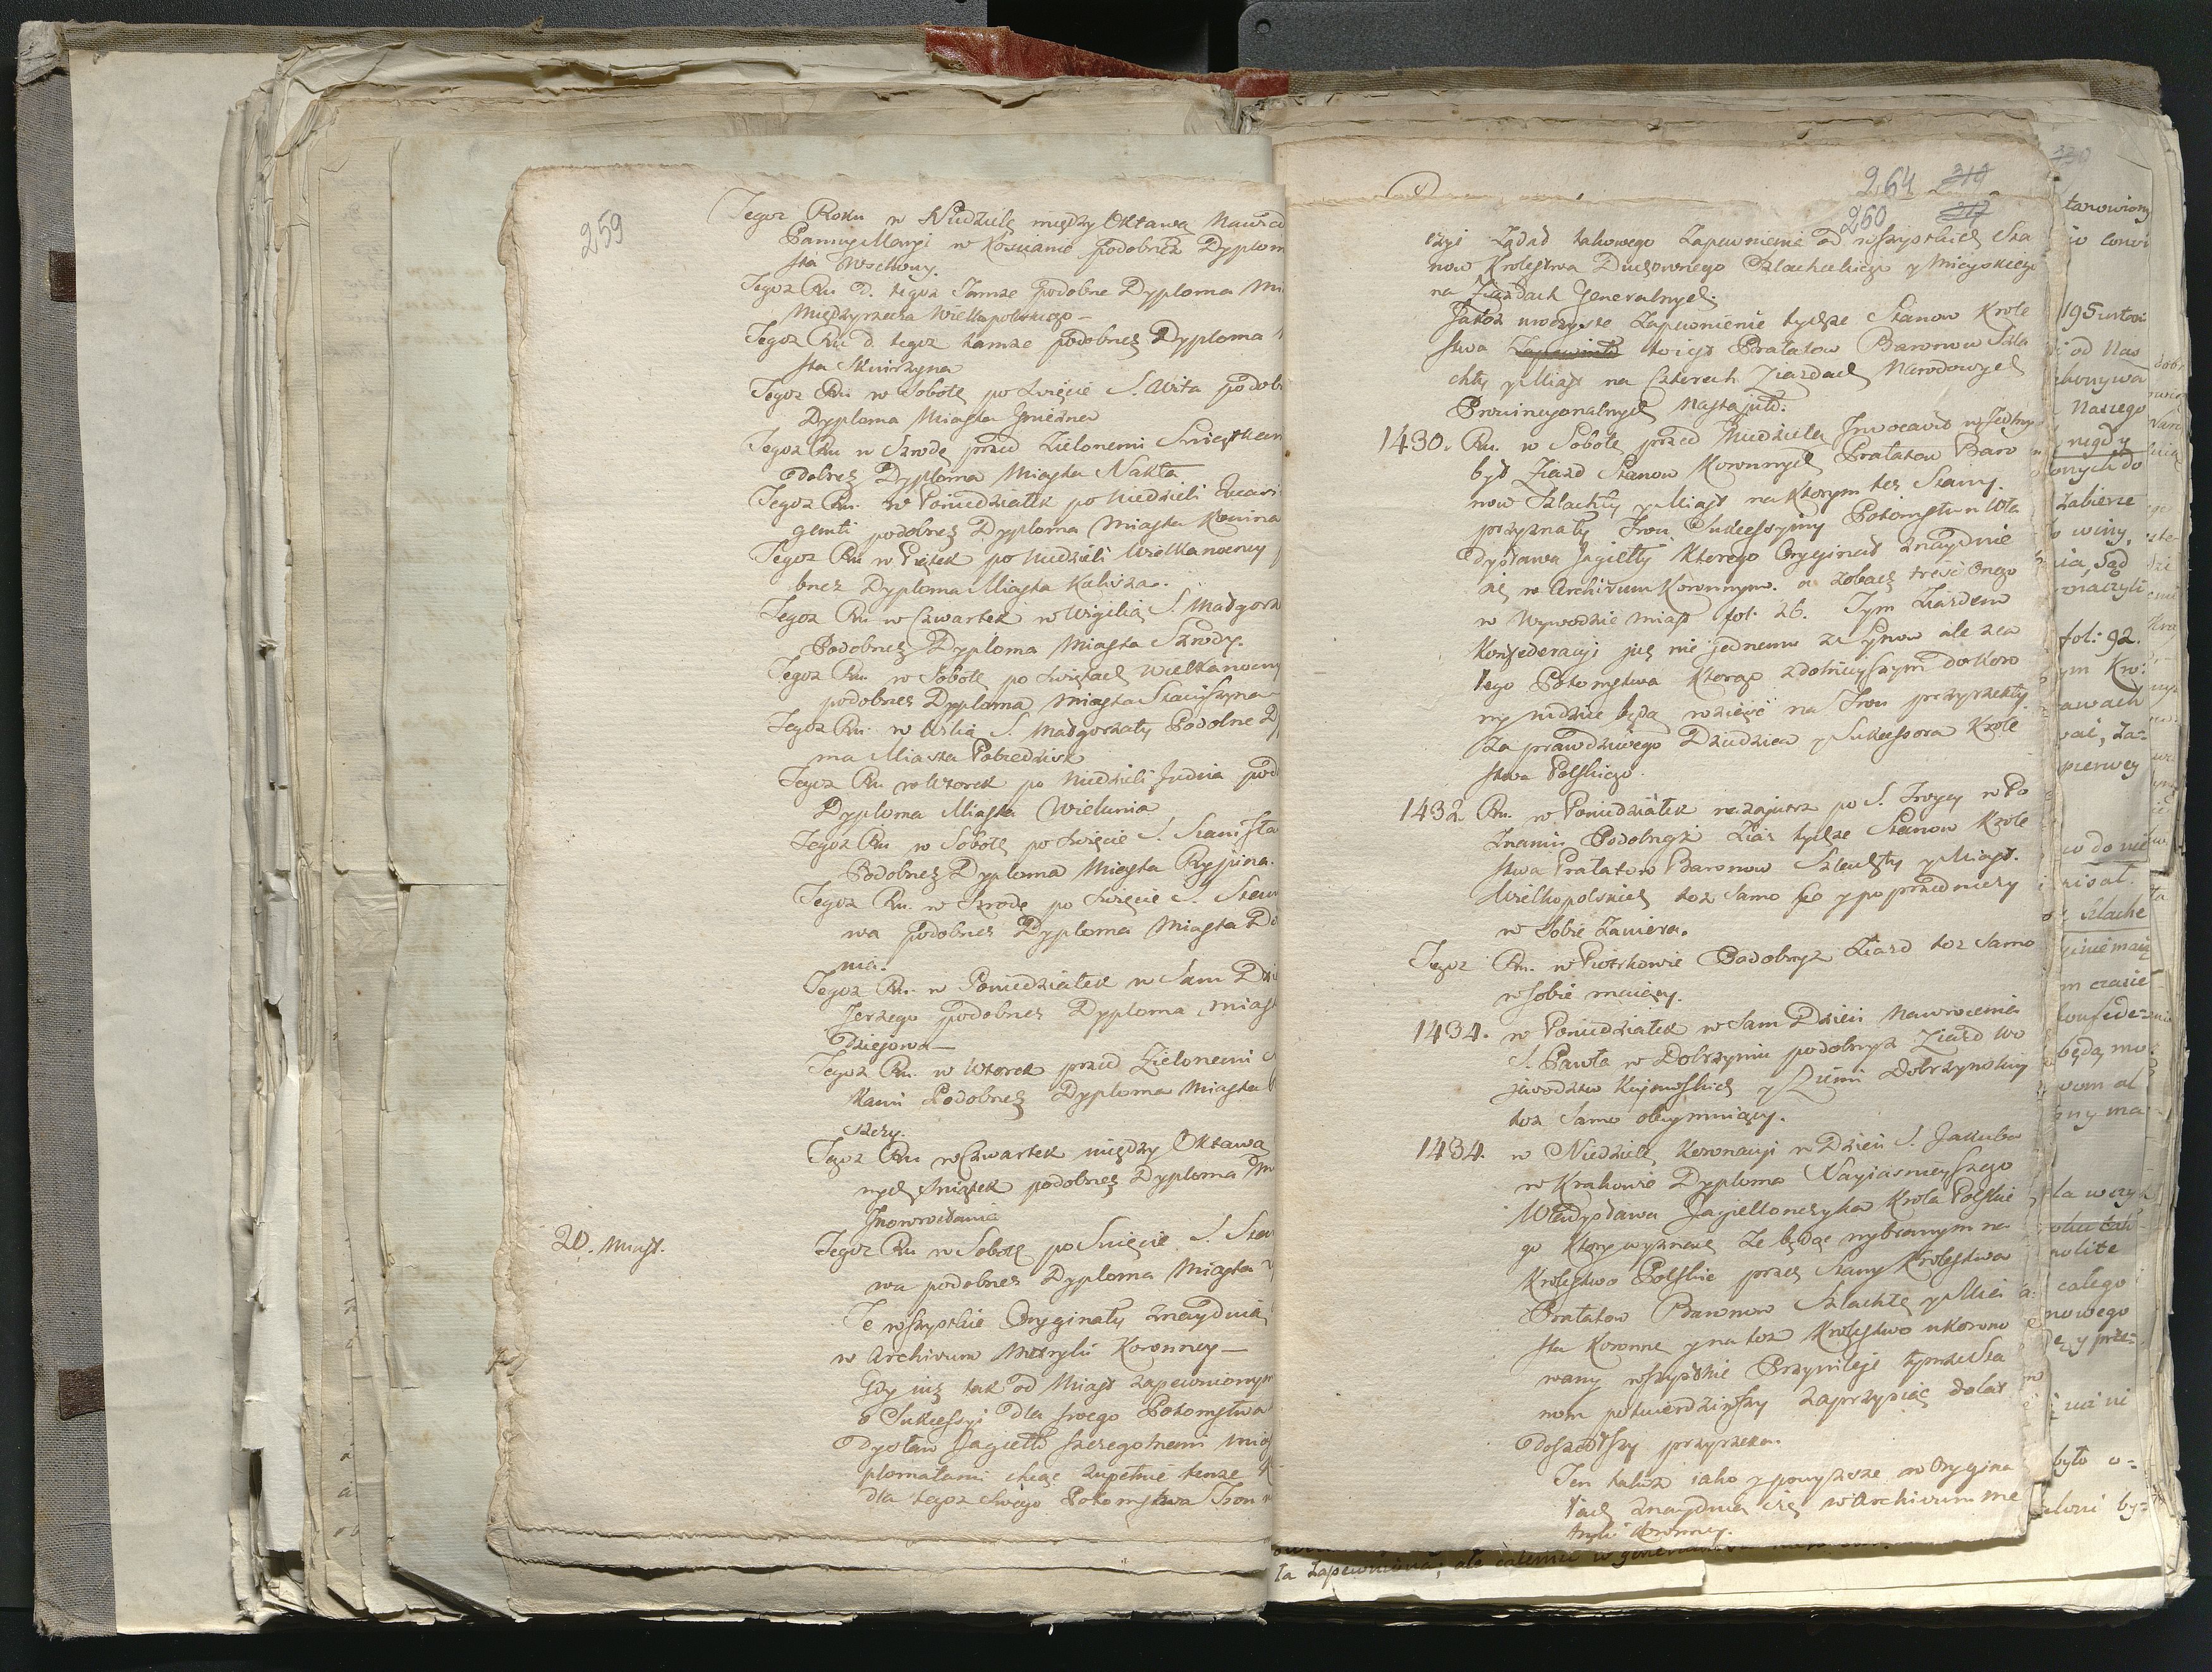 259
Tegoz Roku w Niedzielę między Oktawą Nawied
Panny Maryi w Kościanie podobnez Dyplom
sta Wschowy.
Tegoz Ru d. tegoz Tamze podobne Dyploma Mi
Międzyrzecza Wielkopolskiego –
Tegoz Ru d. tegoz tamze podobnez Dyploma
sta Skwirzyna
Tegoz Ru w Sobotę po święcie S. Wita podob
Dyploma Miasta Gniezna
Tegoz Ru w Szrodę przed Zielonemi Świątkam
odobnez Dyploma Miasta Nakła
Tegoz Ru. w Poniedziałek po Niedzieli Quasi
geniti podobnez Dyploma Miasta Konina
Tegoz Ru w Piątek po Niedzieli Wielkanocney
bnez Dyploma Miasta Kalisza.
Tegoz Ru. w Czwartek w Wigilią S. Małgorz
Podobnez Dyploma Miasta Szrody.
Tegoz Ru. w Sobotę po świętach Wielkanocny
podobnez Dyploma Miasta
Tegoz Ru. w Wilią S. Małgorzaty Podobne Dy
ma Miasta Pobiedzisk
Tegoz Ru w Wtorek po Niedzieli Judica pod
Dyploma Miasta Wielunia
Tegoz Ru w Sobotę po święcie S. Stanisła
Podobnez Dyploma Miasta Rypina.
Tegoz Ru. w Szrodę po święcie S. Stan
wa podobnez Dyploma Miasta Do
nia.
Tegoz Ru. w Poniedziałek w Sam Dzie
Jerzego podobnez Dyploma Miast
dziejowa –
Tegoz Ru. w Wtorek przed Zielonemi S
kami Podobnez Dyploma Miasta
szczy.
Tegoz Ru w Czwartek między Oktawą
nych Świątek podobnez Dyploma M
Jnowrocławia
20. Miast.
Tegoz Ru w Sobotę po Święcie S. Stan
wa podobnez Dyploma Miasta
Te wszystkie Oryginały znayduią
w Archivum Metryki Koronney –
Gdy iuz tak od Miast zapewnionym
o Sukcessyi dla swego Potomstwa
dysław Jagiełło szczegolnemi Mias
plomatami chcąc zupełnie tenze
dla tegoz Swego Potomstwa Tron
264 319
260 317
czyi Żądał takowego Zapewnienia od wszystkich Sta
now Krolestwa Duchownego Szlacheckiego y Mieyskiego
na Ziazdach Generalnych.
Jakoz uroczyste Zapewnienie tychze Stanow Krole
stwa Zapewnieło to iest Prałatow Baronow Szla
chty y Miast na Czterech Ziazdach Narodowych
Prowincyonalnych Nastąpiło.
1430. Ru. w Sobotę przed Niedzielą Invocavit w Jedlny
był Ziazd Stanow Koronnych Prałatow Baro
now Szlachty y Miast na Ktorym tez Stany.
przyznały Tron Sukcessyiny Potomstwu Wła
dysława Jagiełły Ktorego Oryginał znayduie
się w Archivum Koronnym. a zobacz treść Onego
w Wywodzie Miast fol. 26. Tym Ziazdem
Konfederacyi iuz nie jednemu ze Synow ale zca
łego Potomstwa Ktorąz zdolnieyszym do Koro
ny widzieć będą wzieść na Tron przyrzekły.
Za prawdziwego Dziedzica y Sukcessora Krole
stwa Polskiego.
1432 Ru. w Poniedziałek nazajutrz po S. Troycy w Po
znaniu Podobnyz Ziaz tychze Stanow Krole
stwa Prałatow Baronow Szlachty y Miast.
Wielkopolskich toz Samo co y poprzedniczy
w Sobie Zawiera.
Tegoz Ru. w Piotrkowie Podobnyz Ziazd toz Samo
w Sobie maiący.
1434. w Poniedziałek w Sam Dzień Nawrocenia
S. Pawła w Dobrzyniu podobnyz Ziazd Wo
jewodztw Kujawskich y Ziemi Dobrzynskiey
toz Samo obeymuiący.
1434. w Niedzielę Koronacyi w Dzień S. Jakuba
w Krakowie Dyploma Nayiasnieyszego
Władysława Jagiellonczyka Krola Polskie
go Ktory wyznaie Ze będąc wybranym na
Krolestwo Polskie przez Stany Krolestwa
Prałatow Baronow Szlachtę y Mia
sta Koronne y na toz Krolestwo ukorono
wany wszystkie Przywileje tymze Sta
nom potwierdziwszy zaprzysiąc do lat
doszedłszy przyrzeka.
Ten takze iako y powyzsze w Orygina
łach znayduią się w Archivum Me
tryki Koronney.
330
tanowiony
195 ustaw
od Nas
chonywa
Naszego
nigdy
onych do
Zabierze
winy,
nia, Sąd
fol: 92.
ym Kro:
awach
wał, za=
pierwey
w do nie
Szlache
m czasie
konfede=
będą mo
całego
nowego
y prze=
było o=
ta Zapewnienia, ale całemu w